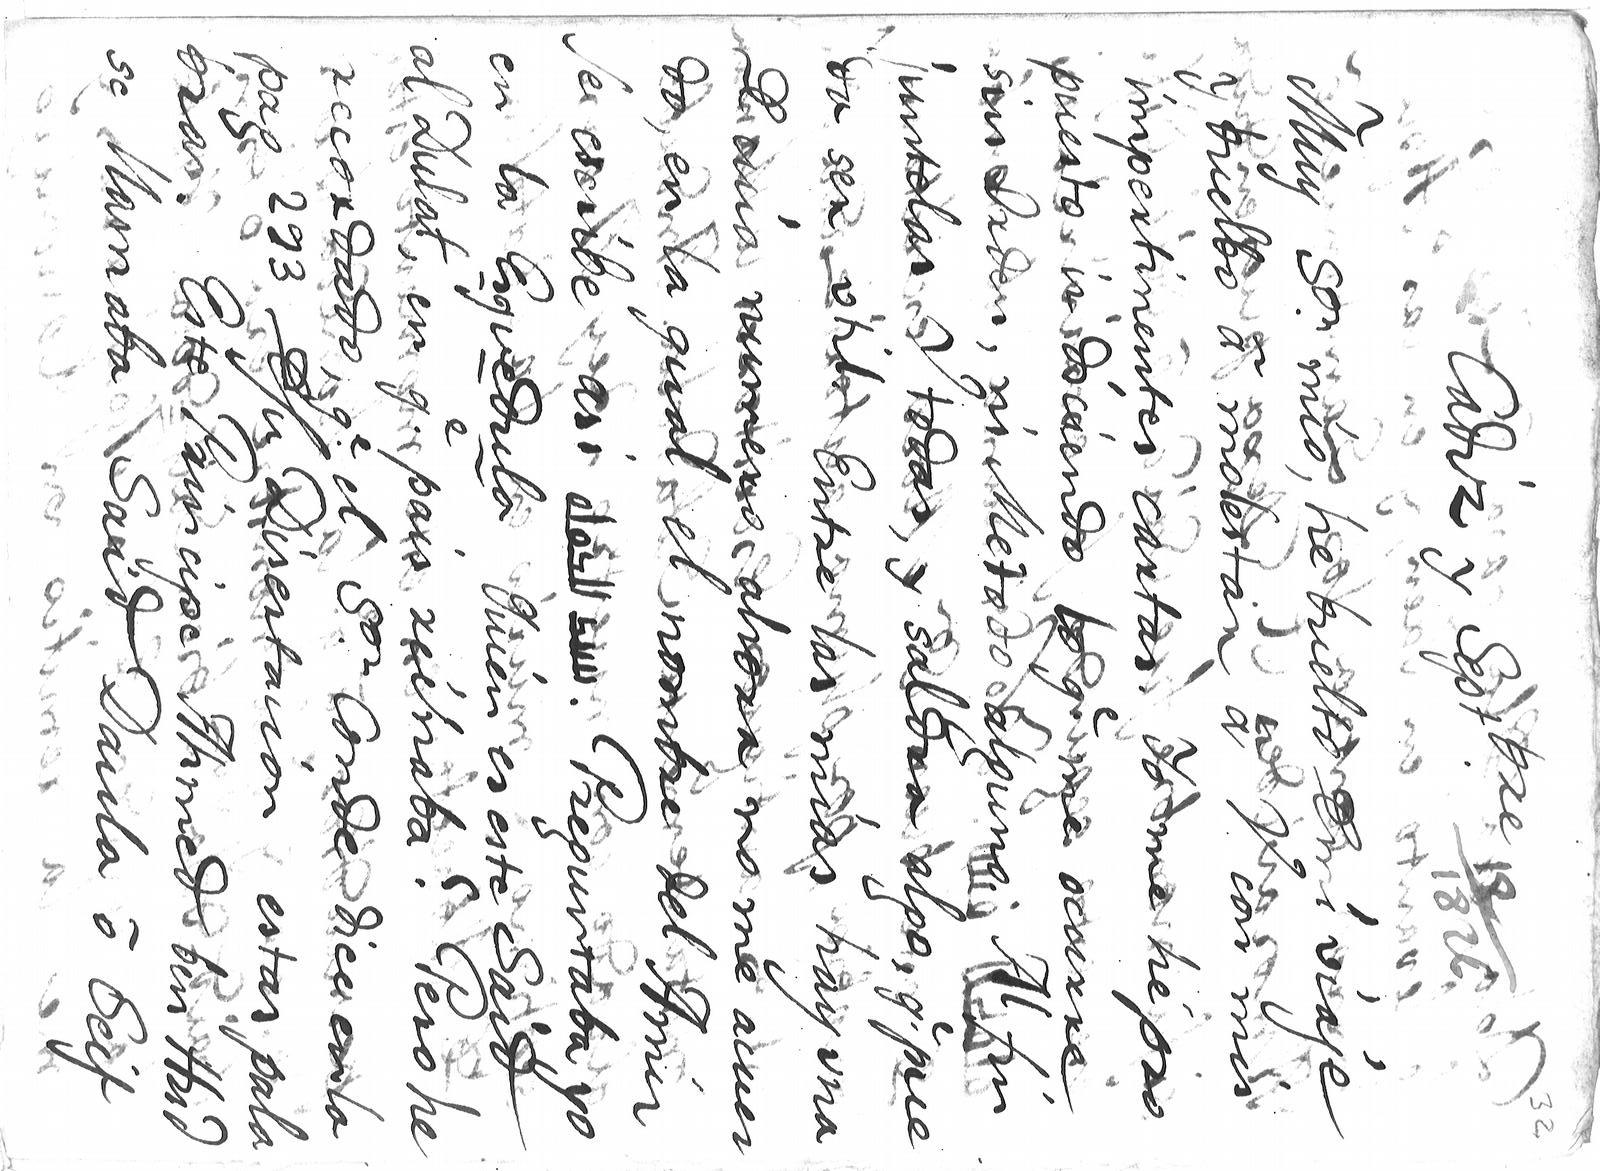 32
Cadiz y Septbre 19/1826
Muy Sor. mio, he buelto de mi viage
y buelbo â molestàr â Vd. con mis
impertinentes cartas. Yo me hé pro
puesto ir diciendo lo q.e me ocurre
sin orden, ni Metodo alguno. Al fin
juntelas Vd todas, y saldra algo, q.e pue
da ser util. Entre las mias hay una
Cuia numero ahora no me acuer
do, en la qual el nombre del Amir
se escribe asi سعد الدوله. Preguntaba yo
en la Esquedula Quien es este Said
al Dulat, en q.e pais reinaba? Pero he
recordado, q.e el Sor. Conde dice en la
pag 293 de su Disertacion estas pala
bras. Este Principe Ahmed ben Hud
se llamaba Saïd Daula ô Seif